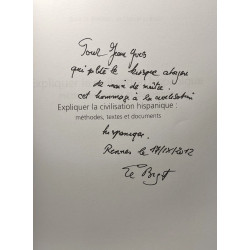 Pour Jean Yves
qui pilote le
de main de maître.
cet hommage à la civilisation
Expliquer la civilisation hispanique :
méthodes, textes et documents
hispanique.
Rennes le 17/IX/2012
Le Bigot